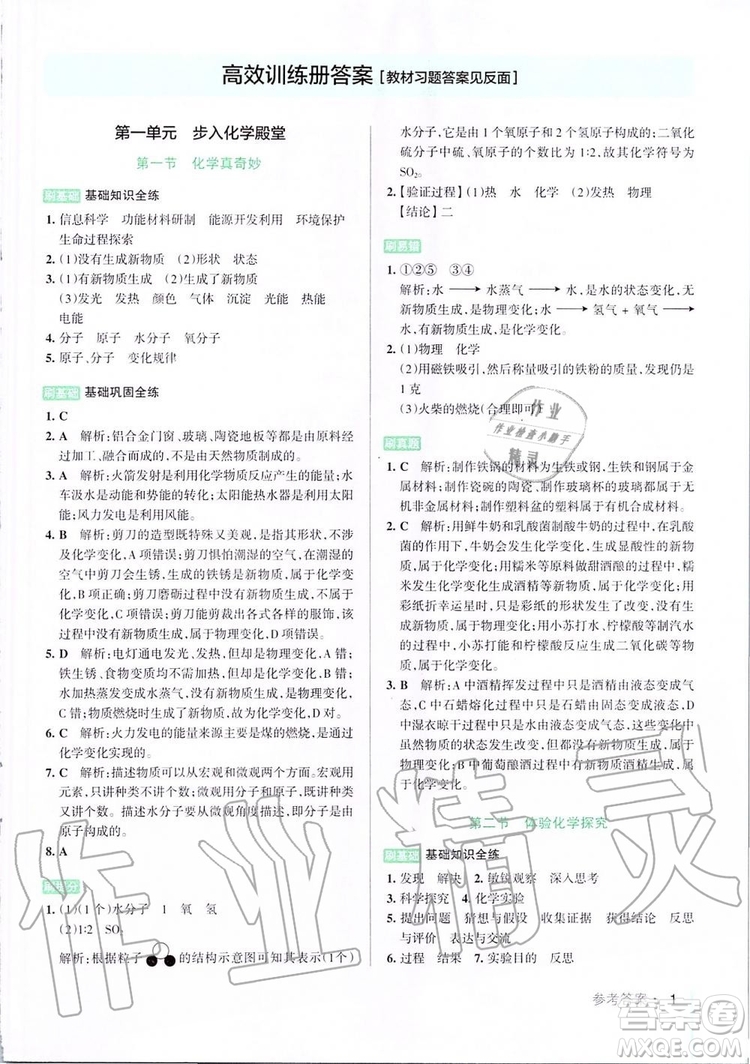 高效训练册答案[教材习题答案见反面]
第一单元 步入化学殿堂
第一节 化学真奇妙
刷基础 基础知识全练
1. 信息科学 功能材料研制 能源开发与利用 环境保护
生命过程探索
2. (1)没有生成新物质 (2)形状 状态
3. (1)有新物质生成 (2)有新物质生成
(3)发光 发热 颜色 气体 沉淀 光能 热能
电能
4. 分子 原子 水分子 氧分子
5. 原子、分子 变化规律
刷基础 基础巩固全练
1. C
2. A 解析:铝合金门窗、玻璃、陶瓷地板等都是由原料经过
加工而成的,不是由天然物质制成的。
3. A 解析:火箭发射是利用化学物质反应产生的能量;水
车汲水是机械能的转化;太阳能热水器是利用太阳
能;风力发电是利用风能。
4. B 解析:剪刀的造型既特殊又美观,是指其形状,不涉
及化学变化,A项错误;剪刀很怕潮湿的空气,在潮湿的
空气中会生锈,生成的铁锈是新物质,属于化学变化,
B项正确;剪刀磨砺过程中,没有新物质生成,不属于
化学变化,C项错误;剪刀能剪裁出各式各样的服饰,该
过程没有新物质生成,属于物理变化,D项错误。
5. D 解析:电灯通电发光、发热,但却是物理变化,A错;
铁生锈、食物变质均不需要加热,但却是化学变化,B错;
水加热蒸发变成水蒸气,没有生成新物质,C错;有新
物质生成的变化一定是化学变化,D对。
6. C 解析:火力发电的能量来源主要是煤的燃烧,是通过
化学变化实现的。
7. C 解析:描述物质可以从宏观和微观两个方面;宏观用
元素,只讲种类不讲个数;微观用分子、原子,既讲种类
又讲个数。描述水分子要从微观角度描述,即水分子是
由原子构成的。
8. A
1. (1)(1个)水分子 1 氧 氢
(2)1∶2 SO₂
解析:根据粒子的结构示意图可知其表示(1个)
水分子,它是由1个氧原子和2个氢原子构成的;二氧化
硫分子中硫、氧原子的个数比为1∶2;故其化学符号为
SO₂。
2. 【验证过程】(1)热 水 化学 (2)发热 物理
【结论】二
刷易错
1. ①②⑤ ③④
解析:水——→水蒸气——→水,是水的状态变化,无
新物质生成,是物理变化;水——→氢气+氧气——→
水,有新物质生成,是化学变化。
2. (1)物理 化学
(2)用磁铁吸引,然后称量,被吸引的铁粉的质量为
1克
(3)火柴的燃烧(合理即可)
刷真题
1. C 解析:制作铁锅的材料为生铁或钢,生铁、钢属于金
属材料;制作瓷碗的陶瓷、制作玻璃杯的玻璃属于无机
材料;制作塑料盆的塑料属于有机合成材料。
2. C 解析:用鲜牛奶和乳酸菌制酸牛奶的过程中,在乳酸
菌的作用下,牛奶会发生化学变化,生成显酸性的新物
质,属于化学变化;用糯米等原料做甜酒酿的过程中,糯
米发生化学变化生成酒精等新物质,属于化学变化;用
彩纸折幸运星时,只是彩纸的形状发生了改变,没有生
成新物质,属于物理变化;用小苏打、柠檬酸等制汽水
的过程中,小苏打能与柠檬酸反应生成二氧化碳等物
质,属于化学变化。
3. B 解析:A中酒精挥发过程中只是酒精由液态变成气
态,C中石蜡熔化过程中只是石蜡由固态变成液态,
D中湿衣晾干过程中只是水由液态变成气态,这些变化中
都只是物质的状态发生改变,没有新物质生成,属于物
理变化;B中葡萄酿酒过程中有新物质酒精生成,属于
化学变化。
第二节 体验化学探究
刷基础 基础知识全练
1. 发现 解决 2. 敏锐观察 深入思考
3. 科学探究 4. 化学实验
5. 提出问题 猜想与假设 收集证据 获得结论 反思
与评价 表达与交流
6. 过程 结果 7. 实验目的 反思
参考答案 1
作业
作业检查小助手
精灵
作业精灵
答案圈
MXQE.COM